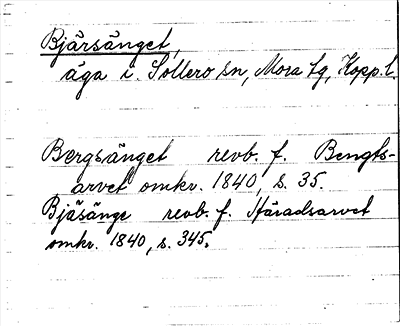 Bjärsänget,
äga i. Sollerö sn, Mora tg, Kopp. l.
Bergsänget revb. f. Bengts-
arvet omkr. 1840, s. 35.
Bjäsänge revb. f. Häradsarvet
omkr. 1840, s. 345.